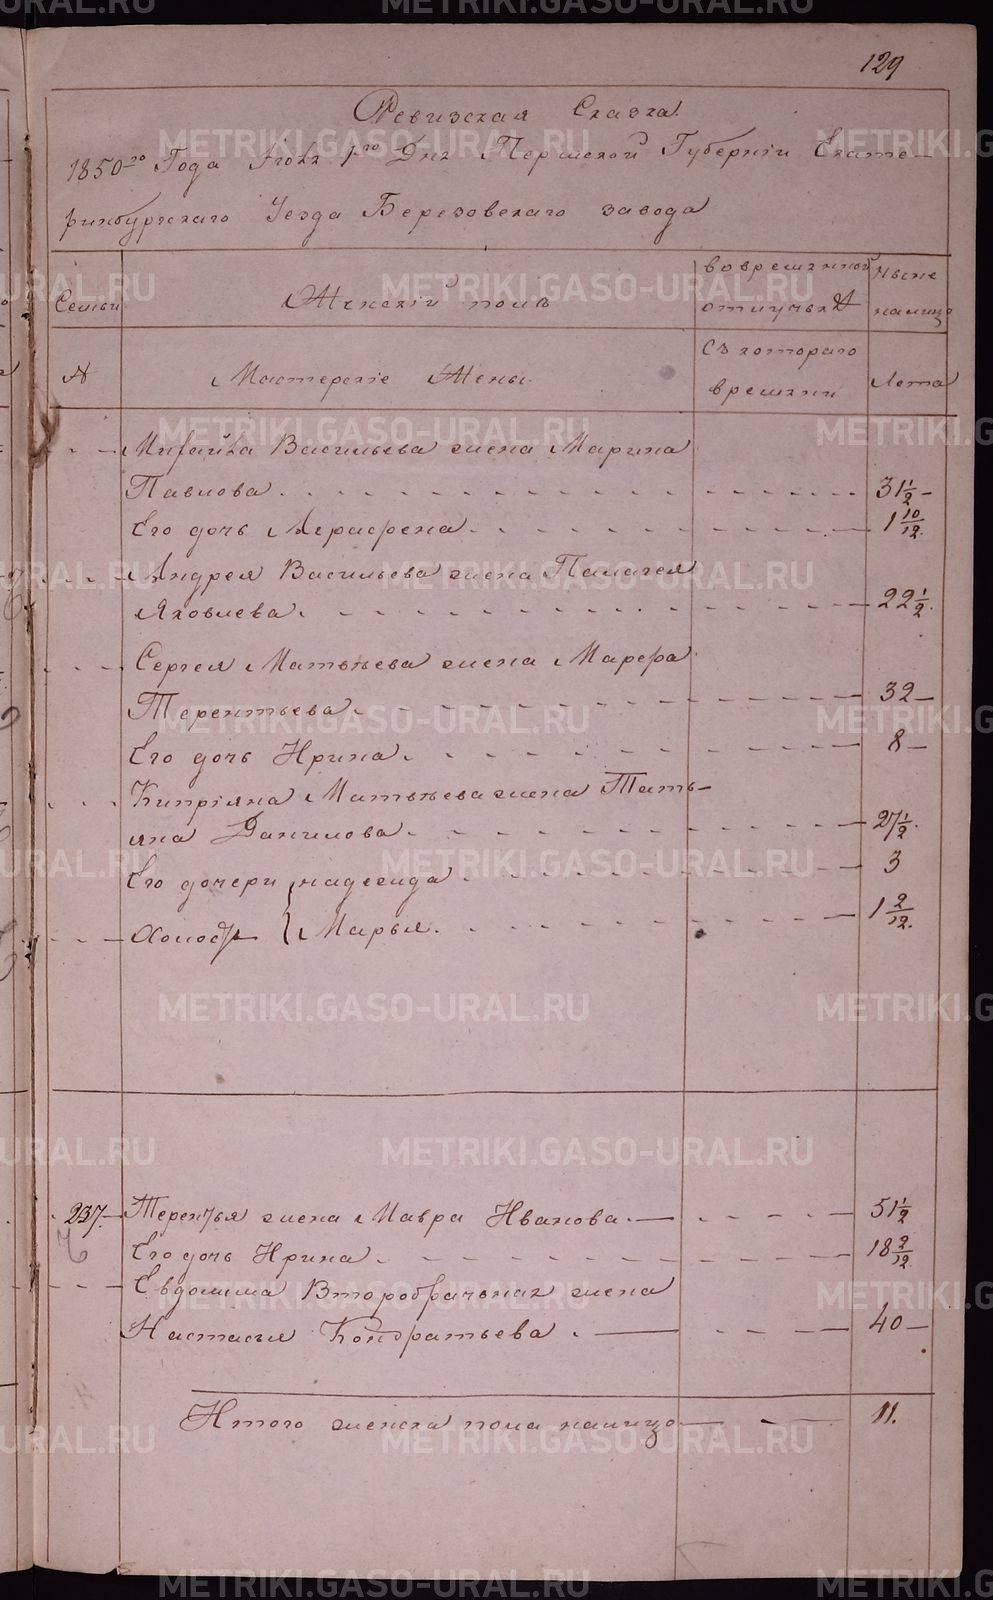 129
Ревизская Сказка
1850го Года Июля 1го Дня Пермской Губернiи Екате-
ринбургскаго Уезда Березовскаго завода
Семьи
Женскiй полъ
во временной
отлучьке
ныне
налицо
№
Мастерскiе Жены
Съ котораго
времени
Лета
Михайла Васильева жена Марина
Павлова
31 1/2
Его дочь Аграфена
1 10/12
Андрея Васильева жена Палагея
Яковлева
22 1/2
Сергея Матьвеева жена Марфа
Терентьева
32
Его дочь Ирина
8
Кипрiяна Матьвеева жена Тать-
яна Данилова
27 1/2
Его дочери надежида
3
Марья
1 2/12
237
Терентья жена Мавра Иванова
51 1/2
Его дочь Ирина
18 2/12
Евдокима Второбрачьная жена
Настасья Кондратьева
40
Итого женска пола налицо
11.
METRIKI.GASO-URAL.RU